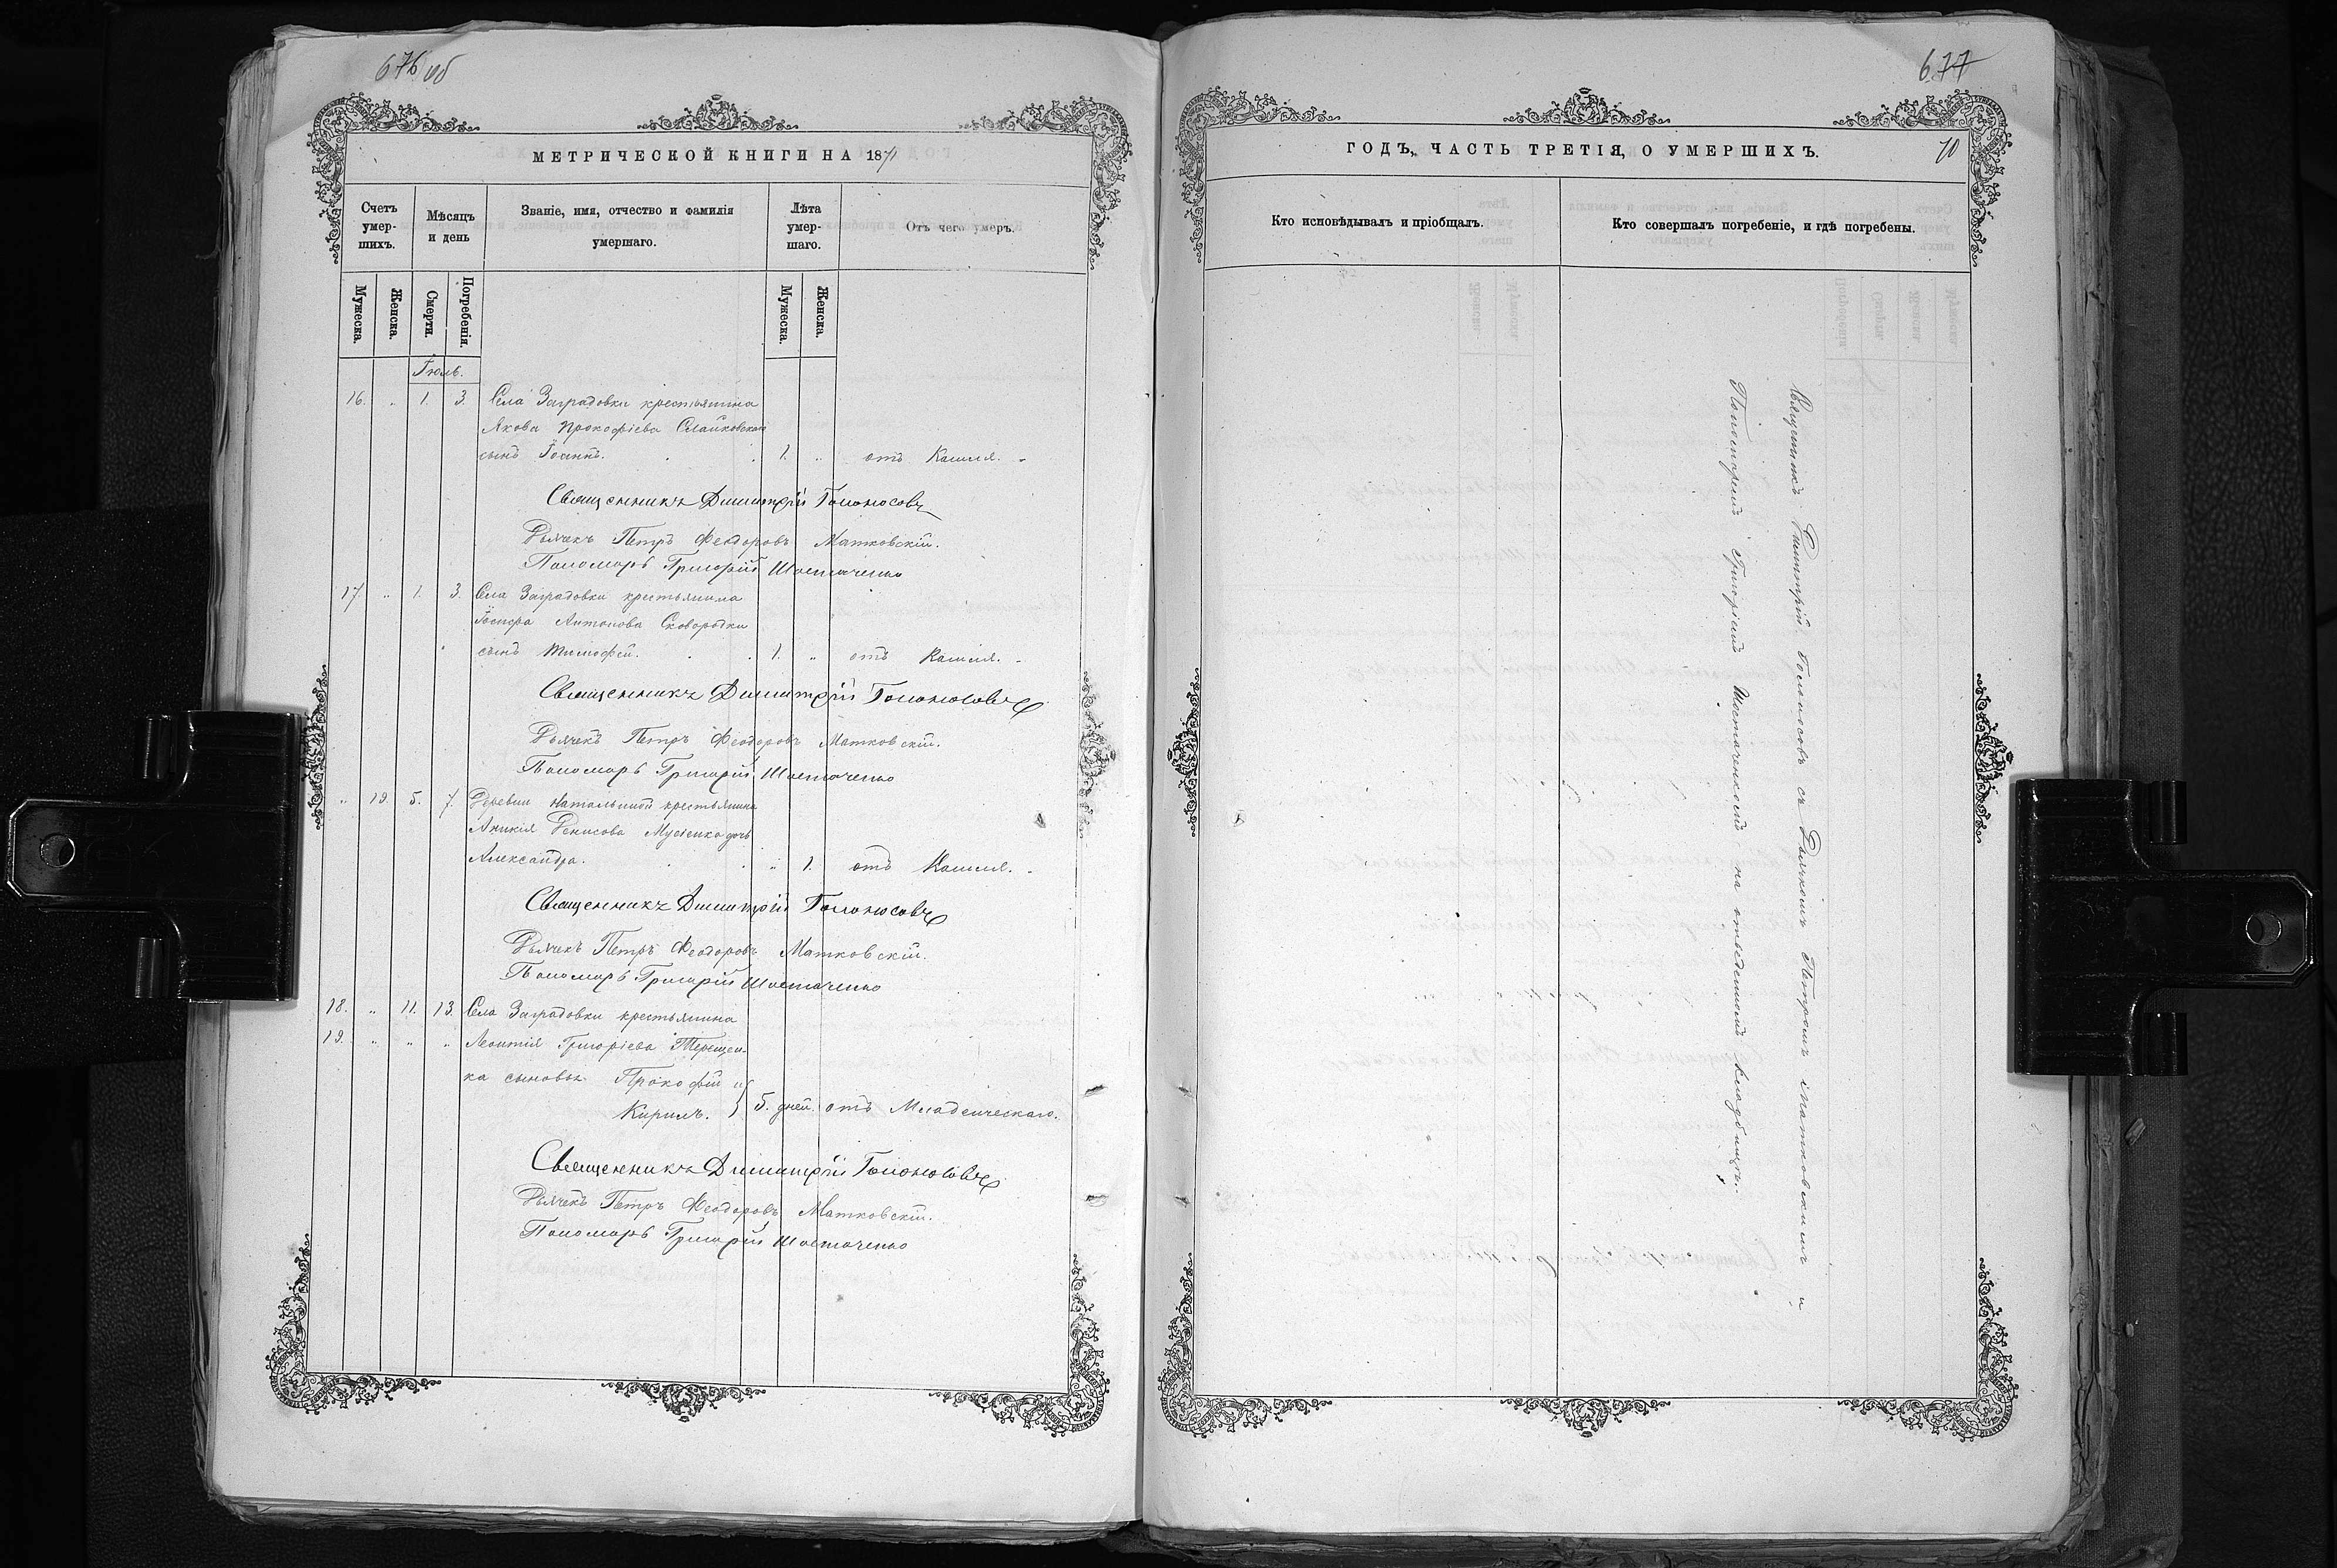 676 об
МЕТРИЧЕСКОЙ КНИГИ НА 1871
Счетъ умер-шихъ.
Мѣсяцъ и день
Званіе, имя, отчество и фамилія умершаго.
Лѣта умер-шаго.
Отъ чего умеръ.
Мужеска.
Женска.
Смерти.
Погребенія.
Мужеска.
Женска.
Іюль.
16. " 1. 3. Села Заградовки крестьянина
Якова Прокофіева
сынъ Іоаннъ. 1. " отъ Кашля.
Священникъ Димитрій Голоносовъ
Дьячекъ Петръ Феодоровъ Матковскій.
Пономарь Григорій Шостаченко
17. " 1. 3. Села Заградовки крестьянина
Іосифа Антонова Сковородки
сынъ Тимофей. 1. " отъ Кашля.
Священникъ Димитрій Голоносовъ
Дьячекъ Петръ Феодоровъ Матковскій.
Пономарь Григорій Шостаченко
" 19. 5. 7. Деревни Натальиной крестьянина
Аникія Денисова Мусіенка дочь
Александра. " 1. отъ Кашля.
Священникъ Димитрій Голоносовъ
Дьячекъ Петръ Феодоровъ Матковскій.
Пономарь Григорій Шостаченко
18. " 11. 13. Села Заградовки крестьянина
19. " " " Леонтія Григоріева Терещен-
ка сыновья Прокофій и
Кирилъ. } 5. дней. отъ Младенческаго.
Священникъ Димитрій Голоносовъ
Дьячекъ Петръ Феодоровъ Матковскій.
Пономарь Григорій Шостаченко
677
ГОДЪ, ЧАСТЬ ТРЕТІЯ, О УМЕРШИХЪ.
70
Кто исповѣдывалъ и пріобщалъ.
Кто совершалъ погребеніе, и гдѣ погребены.
Священникъ Димитрій Голоносовъ съ Дьячкомъ Петромъ Матковскимъ и
Пономаремъ Григоріемъ Шостаченкомъ на отведенномъ кладбищѣ.